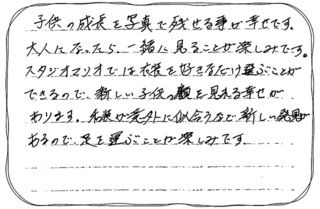 子供の成長を写真で残せる事が幸せです。
大人になったら、一緒に見ることが楽しみです。
スタジオマリオでは衣装を好きなだけ選ぶことが
できるので、新しい子供の顔を見れる幸せが
あります。衣装が意外に似合うなど新しい発見が
あるので、足を運ぶことが楽しみです。